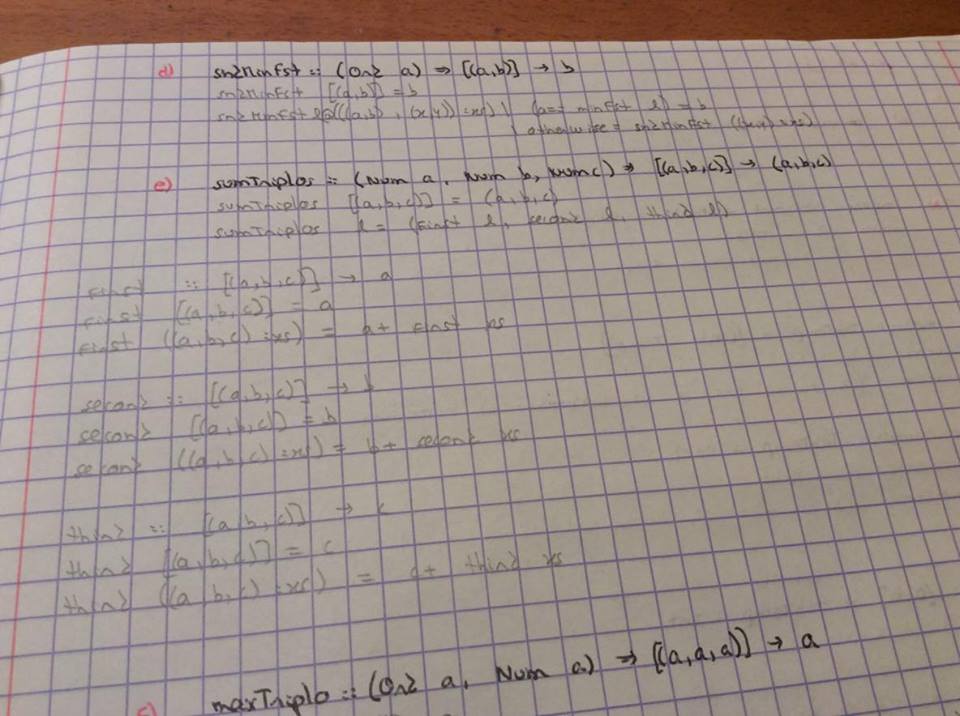 d) sndMinFst :: (Ord a) => [(a,b)] -> b
sndMinFst [(a,b)] = b
sndMinFst l@((a,b) : (x,y) : xs) | (a == minFst l) = b
| otherwise = sndMinFst ((x,y) : xs)
e) sumTriplos :: (Num a, Num b, Num c) => [(a,b,c)] -> (a,b,c)
sumTriplos [(a,b,c)] = (a,b,c)
sumTriplos l = (first l, second l, third l)
first :: [(a,b,c)] -> a
first [(a,b,c)] = a
first ((a,b,c) : xs) = a + first xs
second :: [(a,b,c)] -> b
second [(a,b,c)] = b
second ((a,b,c) : xs) = b + second xs
third :: [(a,b,c)] -> c
third [(a,b,c)] = c
third ((a,b,c) : xs) = c + third xs
f) maxTriplo :: (Ord a, Num a) => [(a,a,a)] -> a